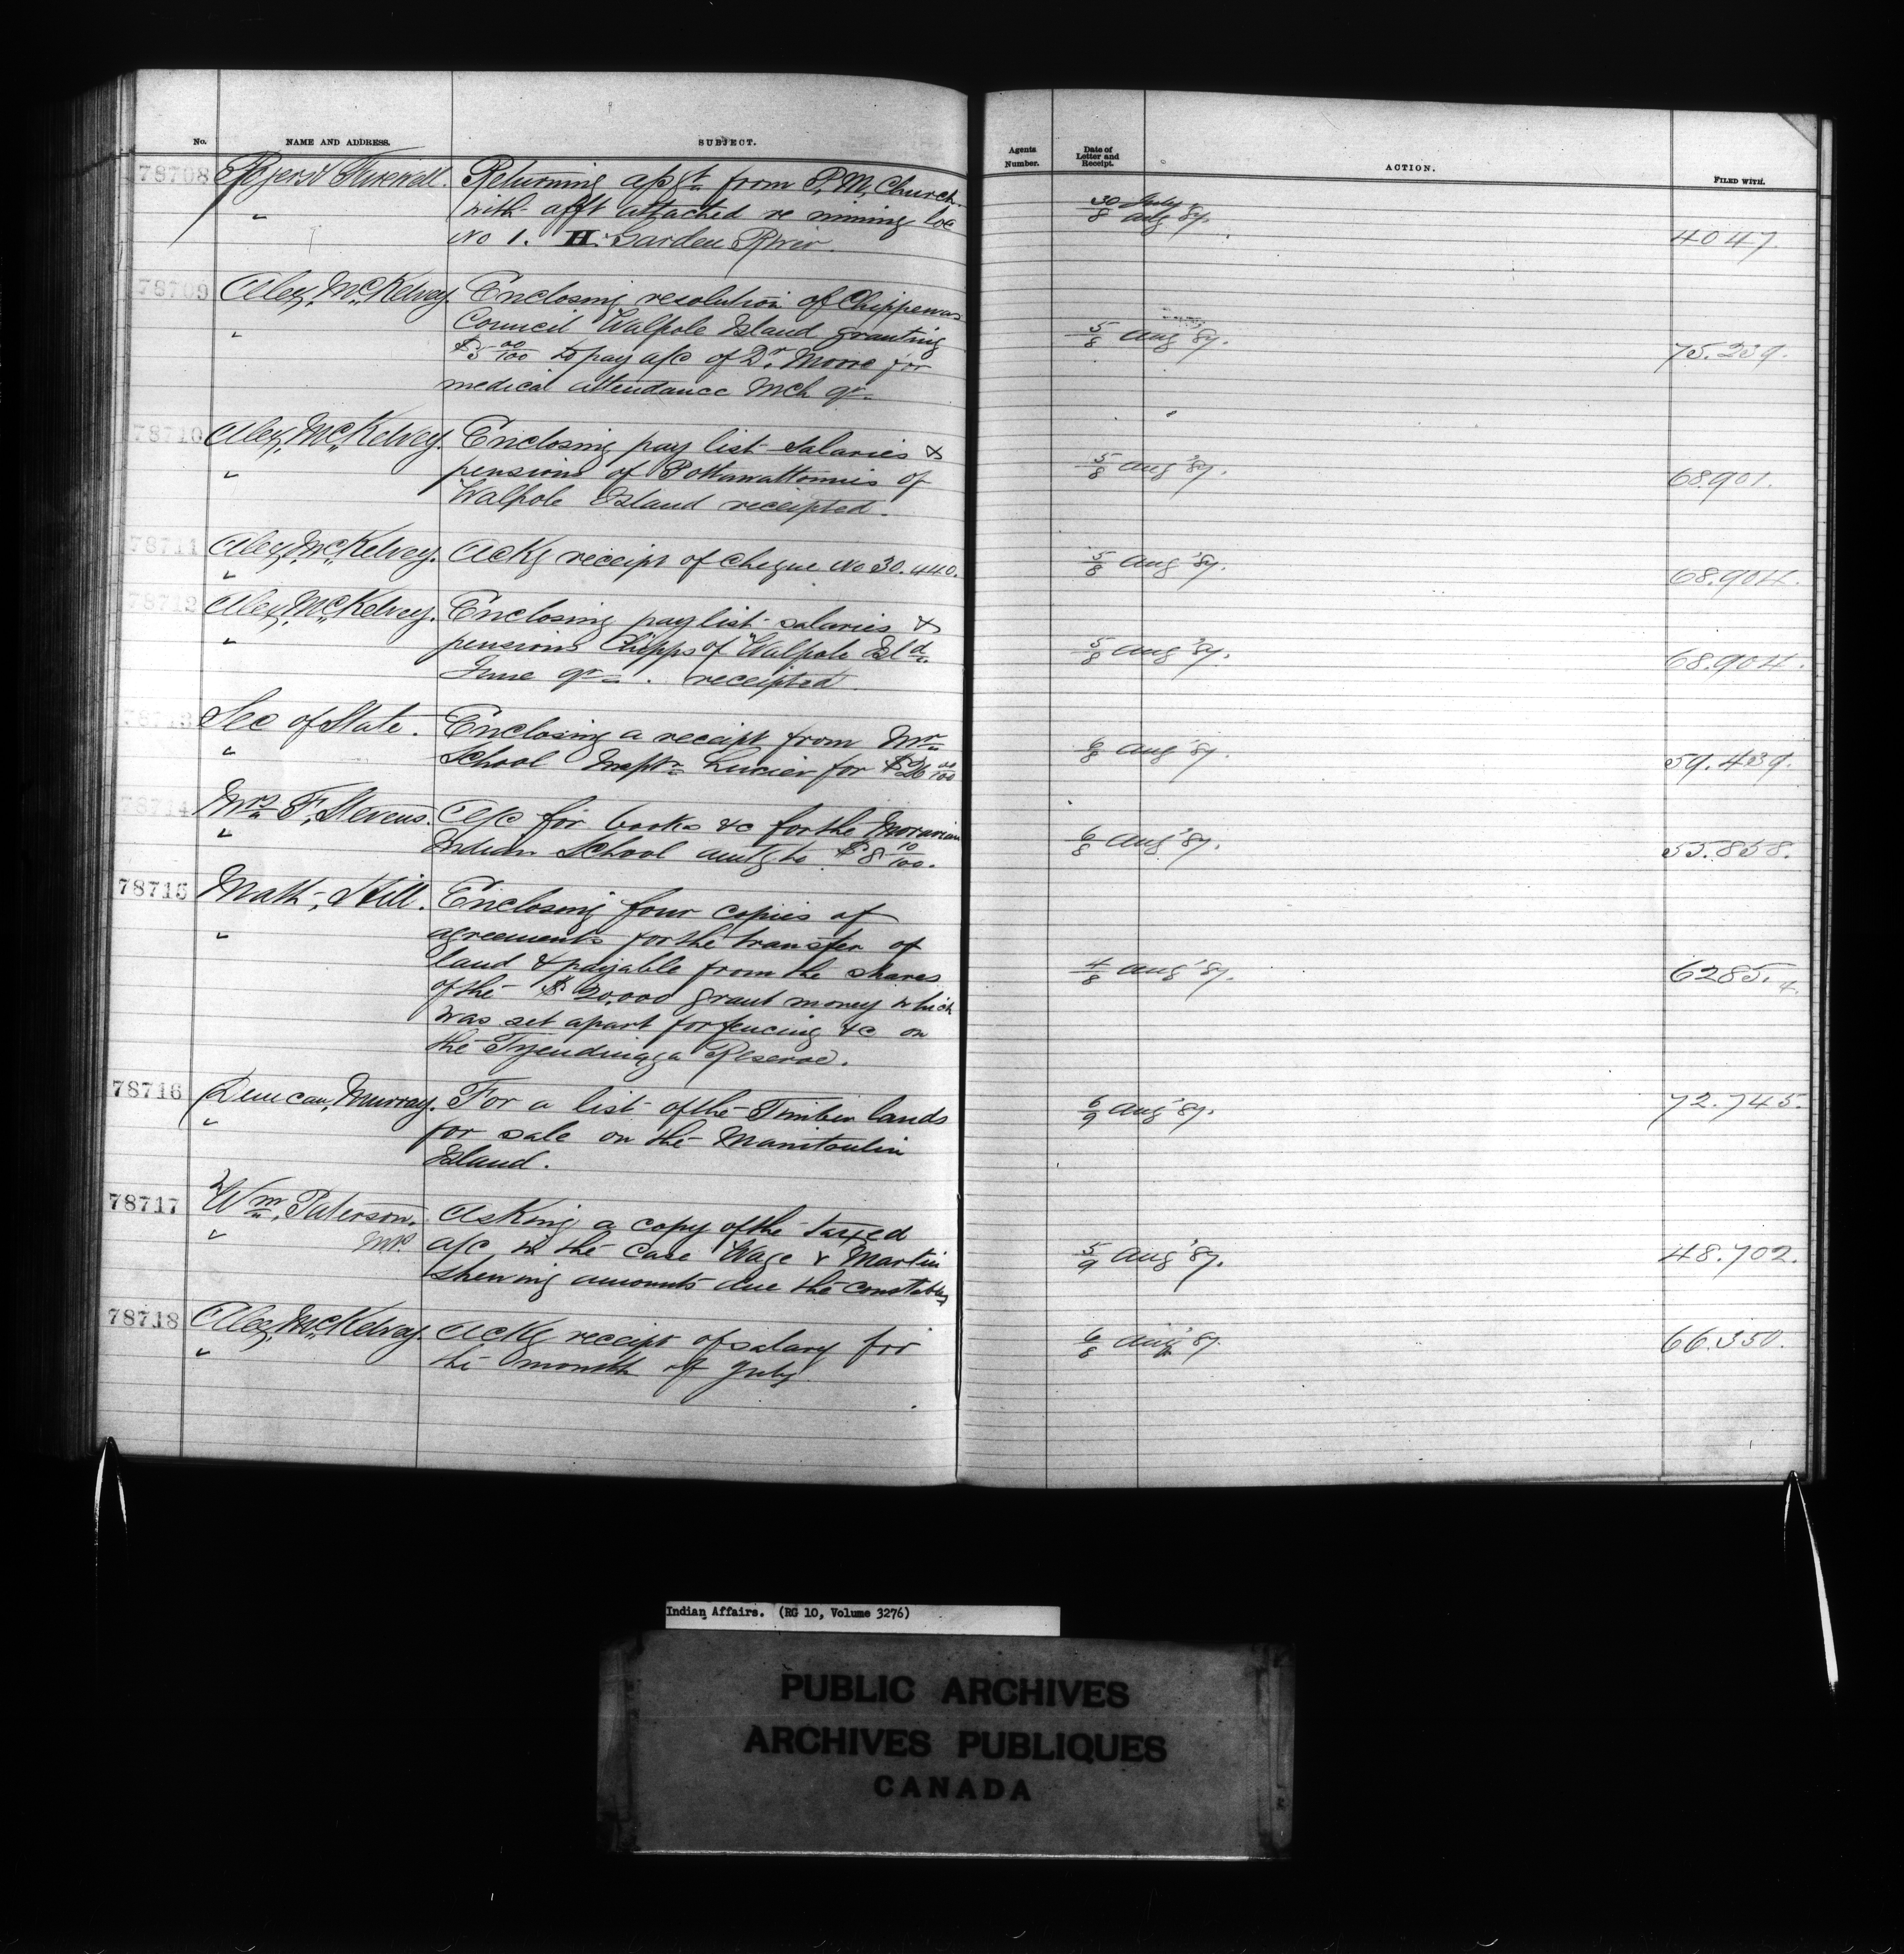 No. NAME AND ADDRESS. SUBJECT. Agents Number. Date of Letter and Receipt. ACTION. FILED WITH.
78708 Returning assgt from P. M. Church 30 July
" with afft attached re mining loc 8 Aug '87.
No 1. H. Garden River. 4047.
78709 Alex, McKelvey. Enclosing resolution of Chippewas
" Council Walpole Island granting 5/8 Aug '87.
$5 00/100 to pay a/c of Dr. Moore for 75.239.
medical attendance Mch qr
78710 Alex, McKelvey. Enclosing pay list salaries &
" pensions of Pottawattomies of 5/8 Aug '87. 68.901.
Walpole Island receipted.
78711 Alex, McKelvey. Ackg receipt of cheque No 30.440. 5/8 Aug '87. 68.904.
"
78712 Alex, McKelvey. Enclosing paylist salaries &
" pensions Chipps of Walpole Isld 5/8 Aug '87. 68.904.
June qr. receipted
78713 Sec of State. Enclosing a receipt from Mr
" School Insptr for $26 00/100 6/8 Aug '87. 59.439.
78714 Mrs F, Stevens. A/c for books &c for the Moravian
" Indian School amtg to $8 10/100. 6/8 Aug '87. 55.858.
78715 Math, Hill. Enclosing four copies of
" agreements for the transfer of
land & payable from the shares 4/8 Aug '87. 6285.4.
of the $20.000 grant money which
was set apart for fencing &c on
the Tyendinaga Reserve.
78716 Duncan, Murray. For a list of the Timber lands 6/9 Aug '87. 72.745.
" for sale on the Manitoulin
Island.
78717 Wm, Paterson. Asking a copy of the taxed
" MP. a/c in the case Wage v Martin 5/9 Aug '87. 48.702.
shewing amounts due the constables
78718 Alex, McKelvey. Ackg receipt of salary for 6/8 Aug '87. 66.350.
" the month of July.
Indian Affairs. (RG 10, Volume 3276)
PUBLIC ARCHIVES
ARCHIVES PUBLIQUES
CANADA